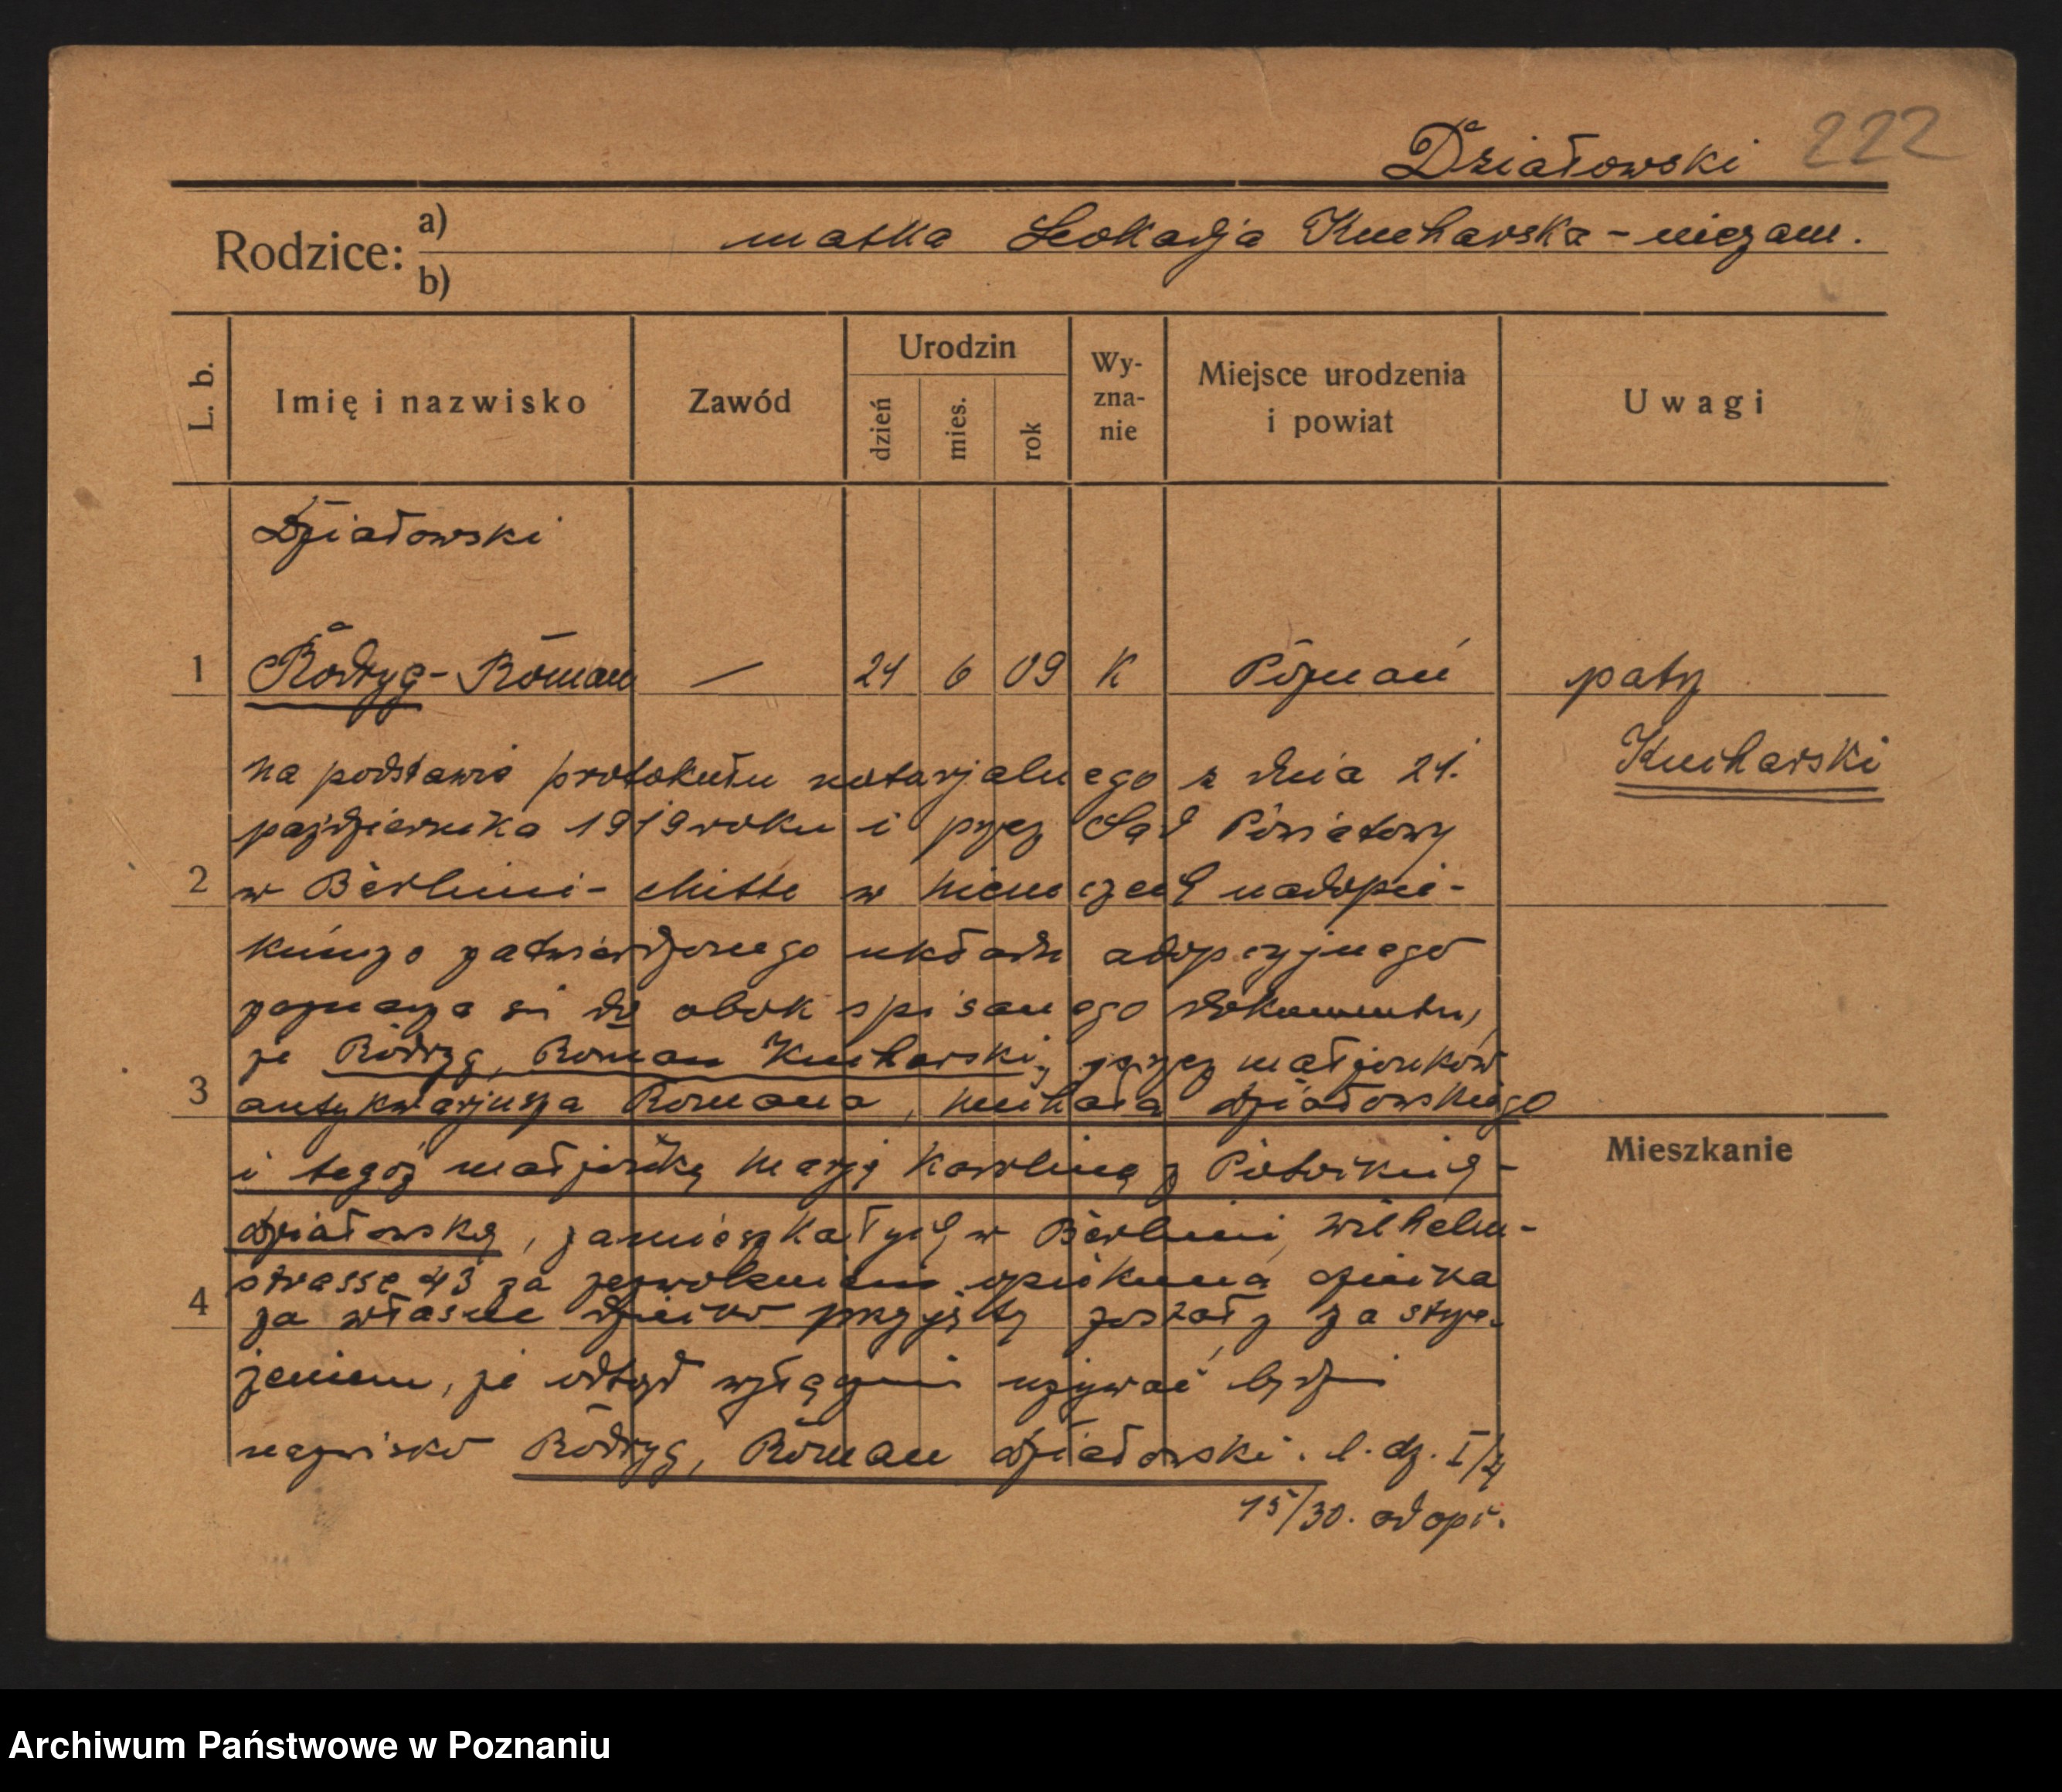 Działowski 222
Rodzice: a) matka Leokadja Kucharska - niezam.
b)
L. b.
Imię i nazwisko
Zawód
Urodzin
dzień
mies.
rok
Wy-
zna-
nie
Miejsce urodzenia
i powiat
Uwagi
Działowski
1 Rodryg - Roman — 24 6 09 K Poznań patrz
Kucharski
na podstawie protokułu notarjalnego z dnia 21.
października 1919 roku i przez Sąd Powiatowy
2 w Berlinie - Mitte w Niemczech nadopie-
kuńczo zatwierdzonego układu adopcyjnego
zaznacza się do obok spisanego dokumentu,
że Rodryg, Roman Kucharski, przez małżonków
3 antykwarjusza Romana, Michała Działowskiego
Mieszkanie
i tegoż małżonkę Marję Karolinę z
Działowską, zamieszkałych w Berlinie, Wilhelm-
strasse 43 za zezwoleniem opiekuna
4 za własne dziecko przyjęty został z zastrze-
żeniem, że odtąd wyłącznie używać będzie
nazwisko Rodryg, Roman Działowski. l. dz. I/4
15/30. adopt.
Archiwum Państwowe w Poznaniu